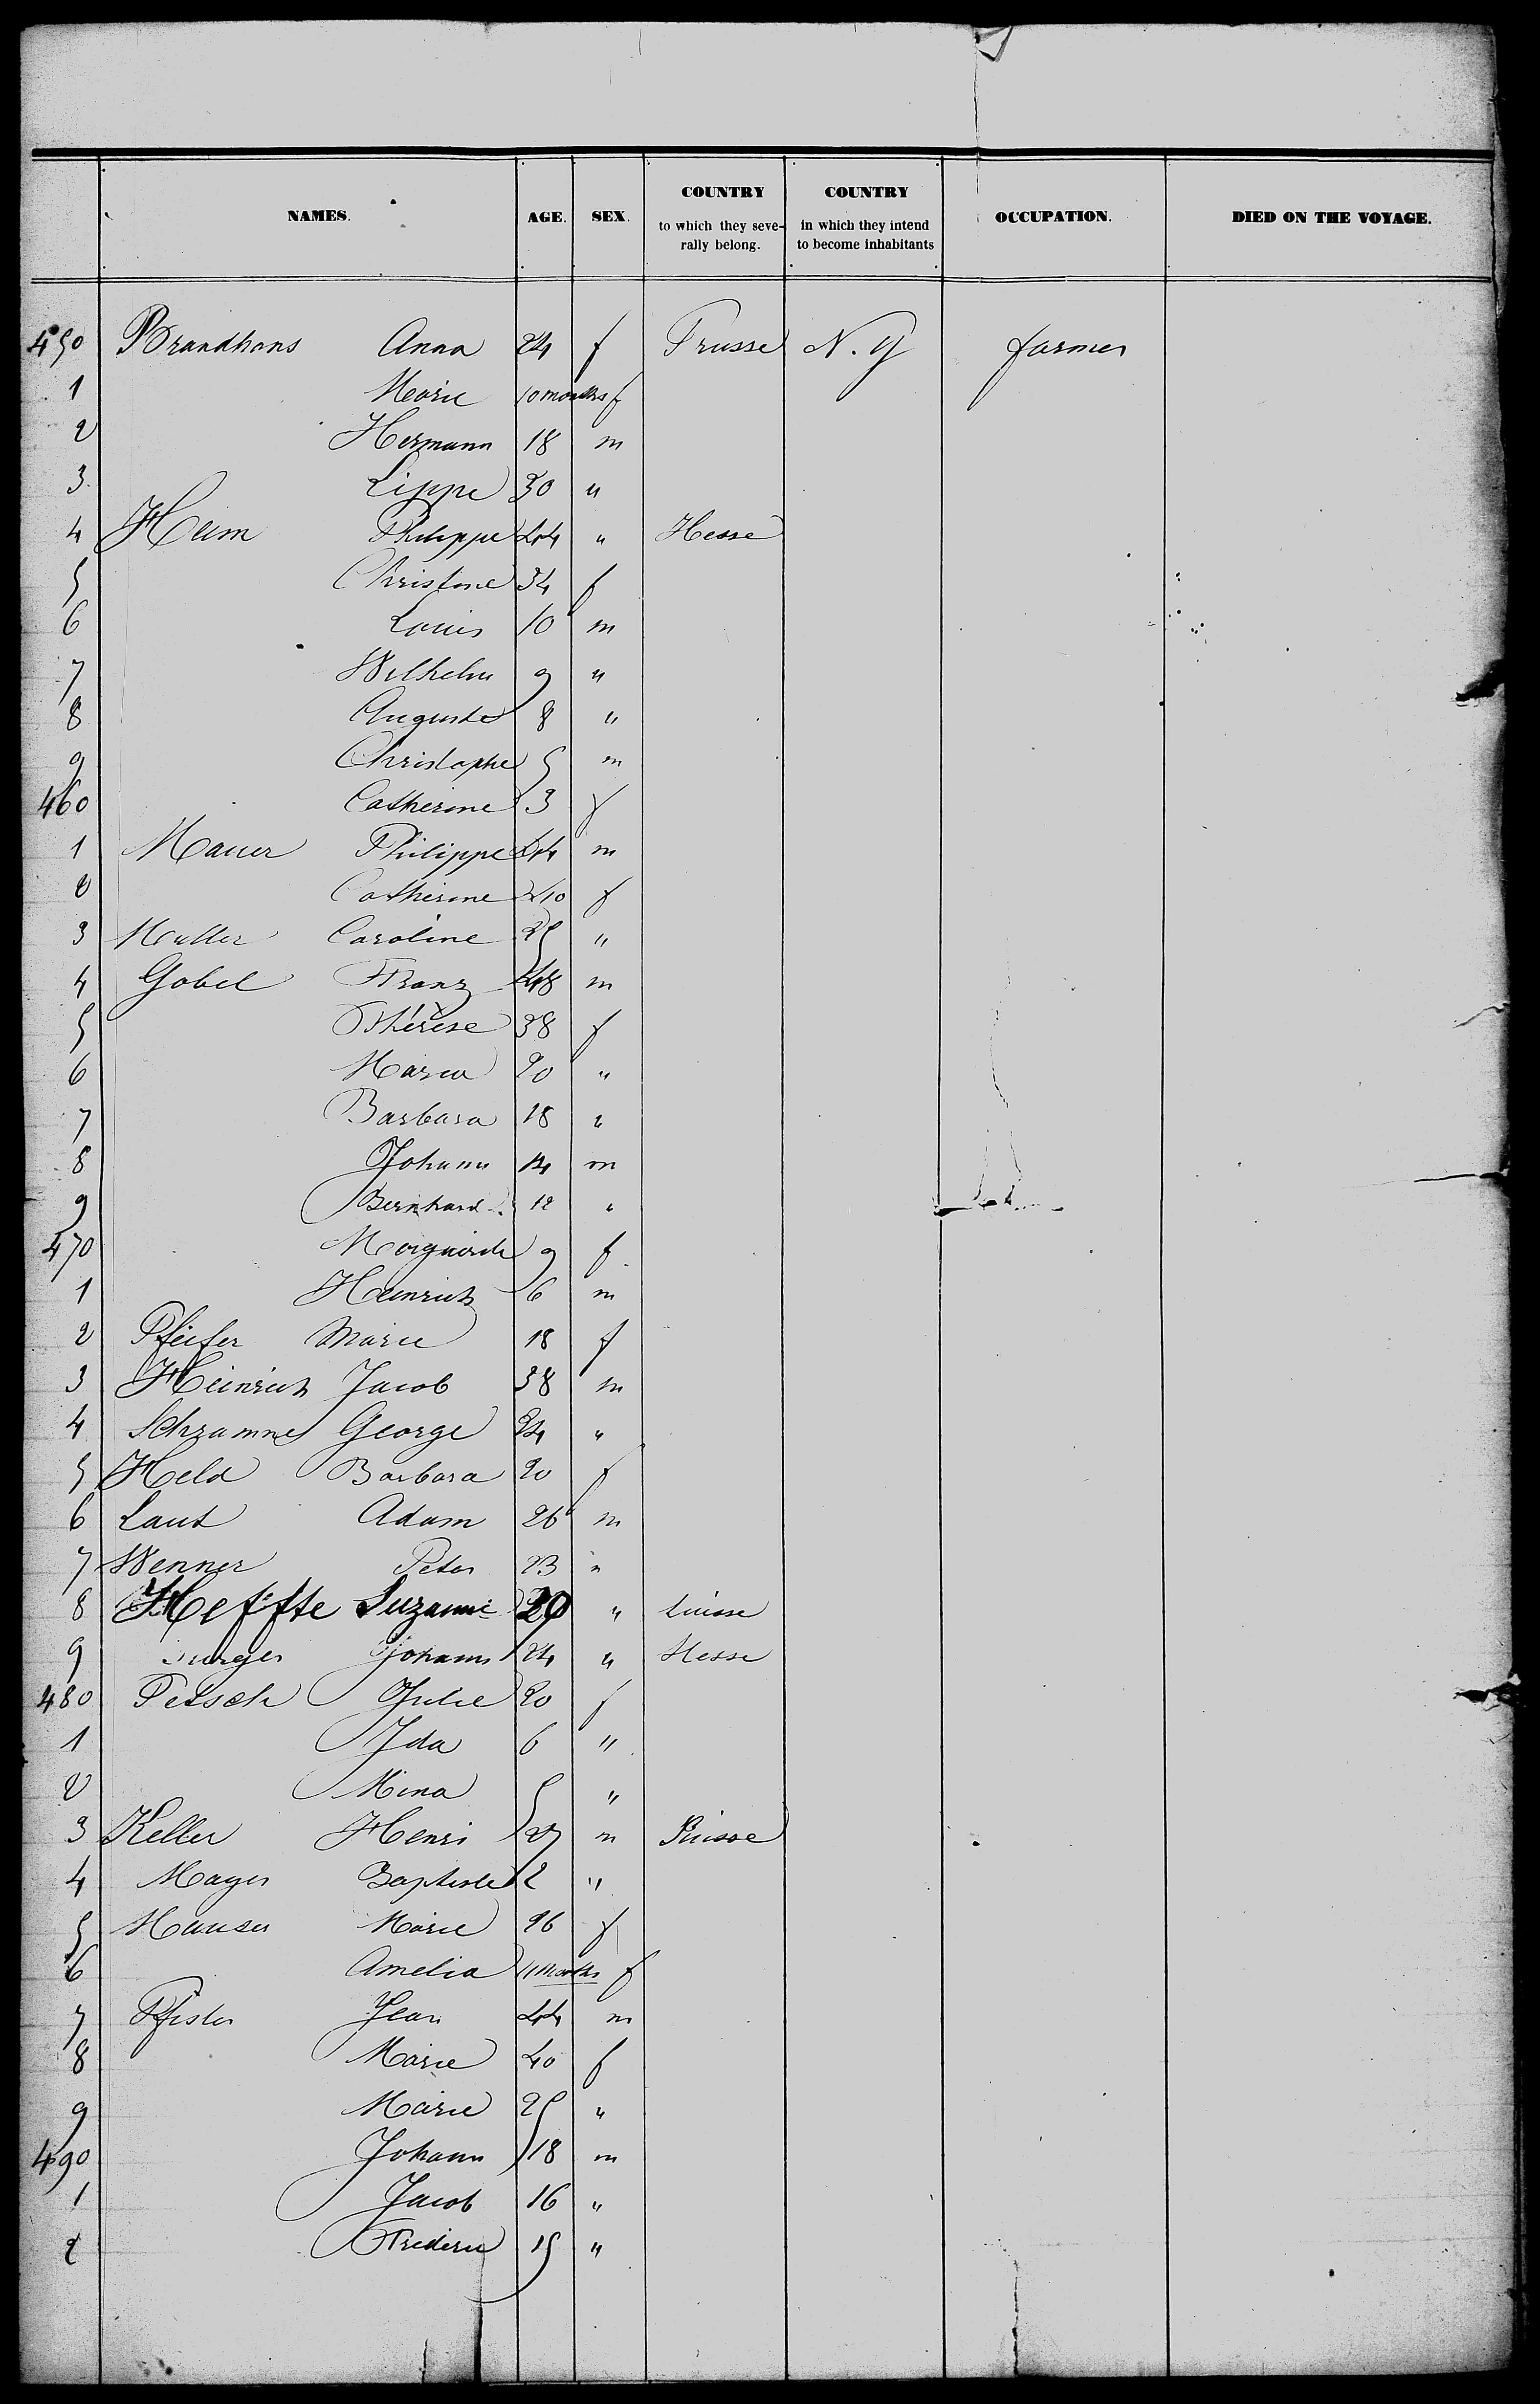 NAMES. AGE. SEX. COUNTRY to which they seve-rally belong. COUNTRY in which they intend to become inhabitants OCCUPATION. DIED ON THE VOYAGE.
450 Brandhans Anna 24 f Prusse N. Y farmer
1 Marie 10 months f
2 Hermann 18 m
3 Lippe 30 "
4 Heim Philippe 44 " Hesse
5 Christine 34 f
6 Louis 10 m
7 Wilhelm 9 "
8 Auguste 8 "
9 Christophe 5 m
460 Catherine 3 f
1 Mauer Philippe 44 m
2 Catherine 40 f
3 Muller Caroline 25 "
4 Gobel Franz 48 m
5 Thérèse 38 f
6 Maria 20 "
7 Barbara 18 "
8 Johann 14 m
9 Bernhard 12 "
470 9 f
1 Heinrich 6 m
2 Pfeifer Marie 18 f
3 Heinrich Jacob 38 m
4 Schramme George 24 "
5 Held Barbara 20 f
6 Laut Adam 26 m
7 Wenner Peter 23 "
8 Heffte Suzanne " Suisse
9 Johann 24 " Hesse
480 Petsch Julie 20 f
1 Ida 6 "
2 Mina 5 "
3 Keller Henri 27 m Suisse
4 Mayer Baptiste 2 "
5 Hauser Marie 26 f
6 Amelia 11 months f
7 Pfister Jean 44 m
8 Marie 40 f
9 Marie 25 "
490 Johann 18 m
1 Jacob 16 "
2 15 "